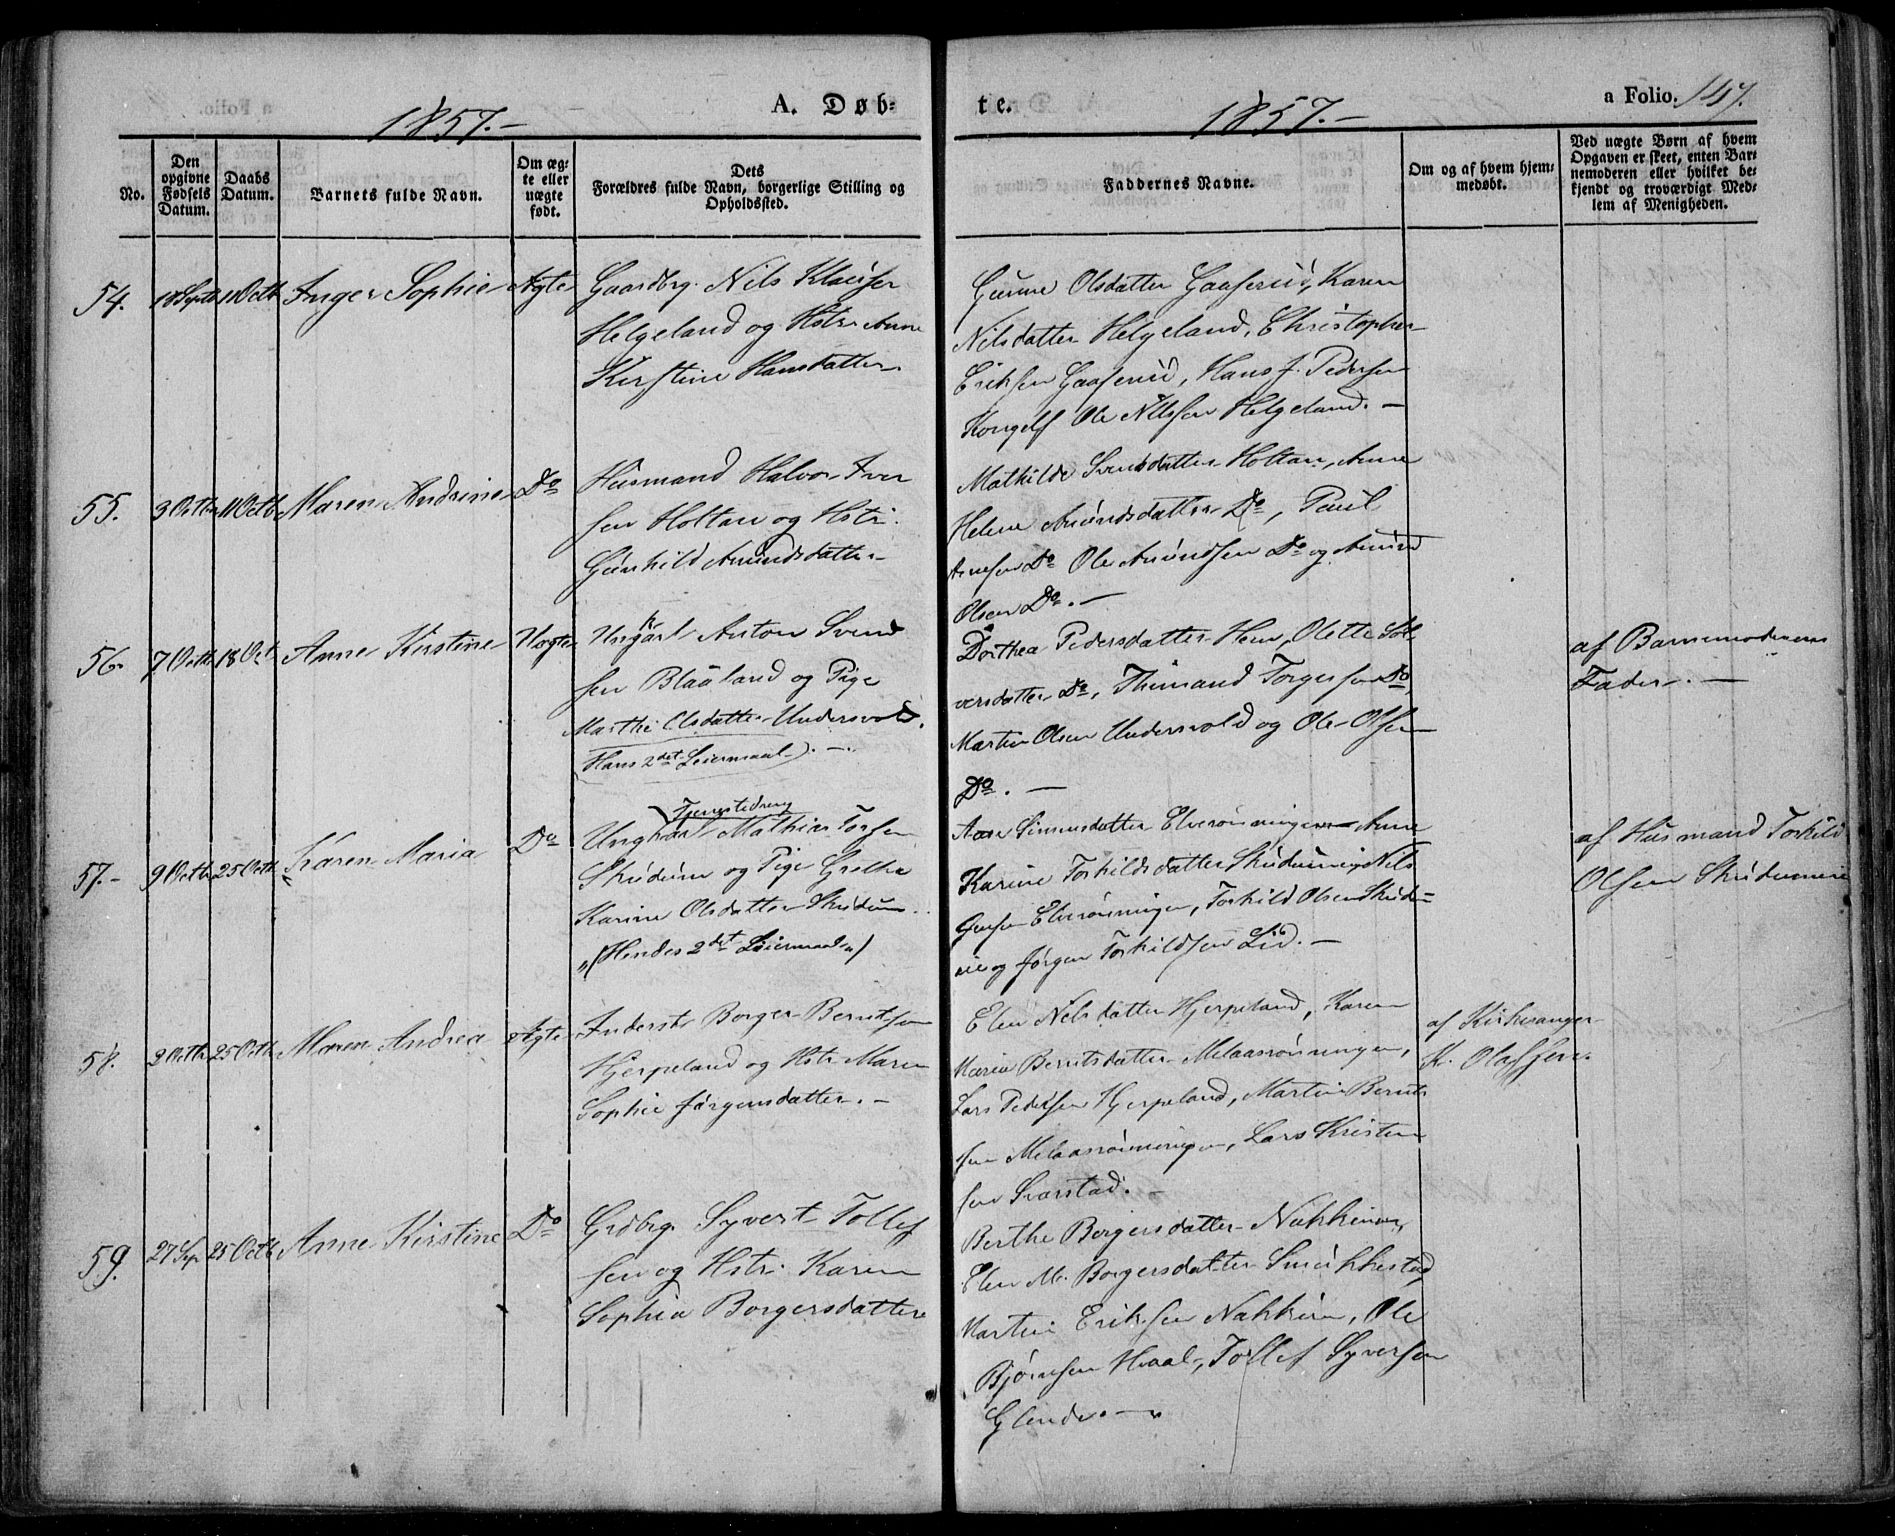 1857.-
A. Døb-
te.
1857.-
a Folio. 147.
No.
Den opgivne Fødsels Datum.
Daabs Datum.
Barnets fulde Navn.
Om ægte eller uægte født.
Dets Forældres fulde Navn, borgerlige Stilling og Opholdssted.
Faddernes Navne.
Om og af hvem hjemmedøbt.
Ved uægte Børn af hvem Opgaven er skeet, enten Barnemoderen eller hvilket bekjendt og troværdigt Medlem af Menigheden.
54.
18 Septb
11 Octb
Inger Sophie
Ægte
Gaardbrg. Nils Klausen
Helgeland og Hstr. Anne
Kirstine Hansdatter
Gunne Olsdatter Gaaserud, Karen
Nilsdatter Helgeland, Christopher
Eriksen Gaaserud, Hans J. Pedersen
Kongelf Ole Nilssen Helgeland.-
55.
3 Octb
11 Octb
Maren Andrine
Do
Husmand Halvor Iver
sen Holtan og Hstr.
Gunhild Amundsdatter
Mathilde Svendsdatter Holtan, Anne
Helene Amundsdatter Do, Paul
Arnesen Do Ole Amundsen Do og Amund
Olsen Do.-
56.
7 Octb
18 Oct
Anne Kirstine
Uægte
Ungkarl Anton Svend
sen Blaaland og Pige
Marthe Olsdatter Undersvold.
(Hans 2det Leiermaal).-
Dorthea Pedersdatter Hem, Olette Sol
versdatter Do, Thimand Torgersen Do,
Martin Olsen Undersvold og Ole Olsen
Do.-
af Barnemoderens
Fader.-
57.-
9 Octb
25 Octb
Karen Maria
Do
Tjenestedreng
Ungkarl Mathias Torsen
Skudum og Pige Grethe
Karine Olsdatter Skudum
"(Hendes 2det Leiermaal")
Aase Simensdatter Elverønningen Anne
Karine Torkildsdatter Skudumie, Nils
Torkild Olsen Skudu=
mie og Jørgen Torkildsen Lid.-
af Husmand Torkild
Olsen Skudumie
58.
2 Octb
25 Octb
Maren Andrea
Ægte
Inderst Borger Berntsen
Hjerpeland og Hstr. Maren
Sophie Jørgensdatter.-
Elen Nilsdatter Hjerpeland, Karen
Maria Berntsdatter Melaasrønningen,
Lars Pedersen Hjerpeland, Martin Bernt
sen Melaasrønningen, Lars Kristen
sen Svarstad.-
af Kirkesanger
K. Olafsen.
59.
27 Sep
25 Octb
Anne Kirstine
Do
Grdbrg. Syvert Tollef
sen og Hstr. Karen
Sophia Borgersdatter
Berthe Borgersdatter Nakkim,
Elen M. Borgersdatter Smukkestad,
Martin Eriksen Nakkim, Ole
Bjørnsen Hvaal, Tollef Syversen
Glende.-